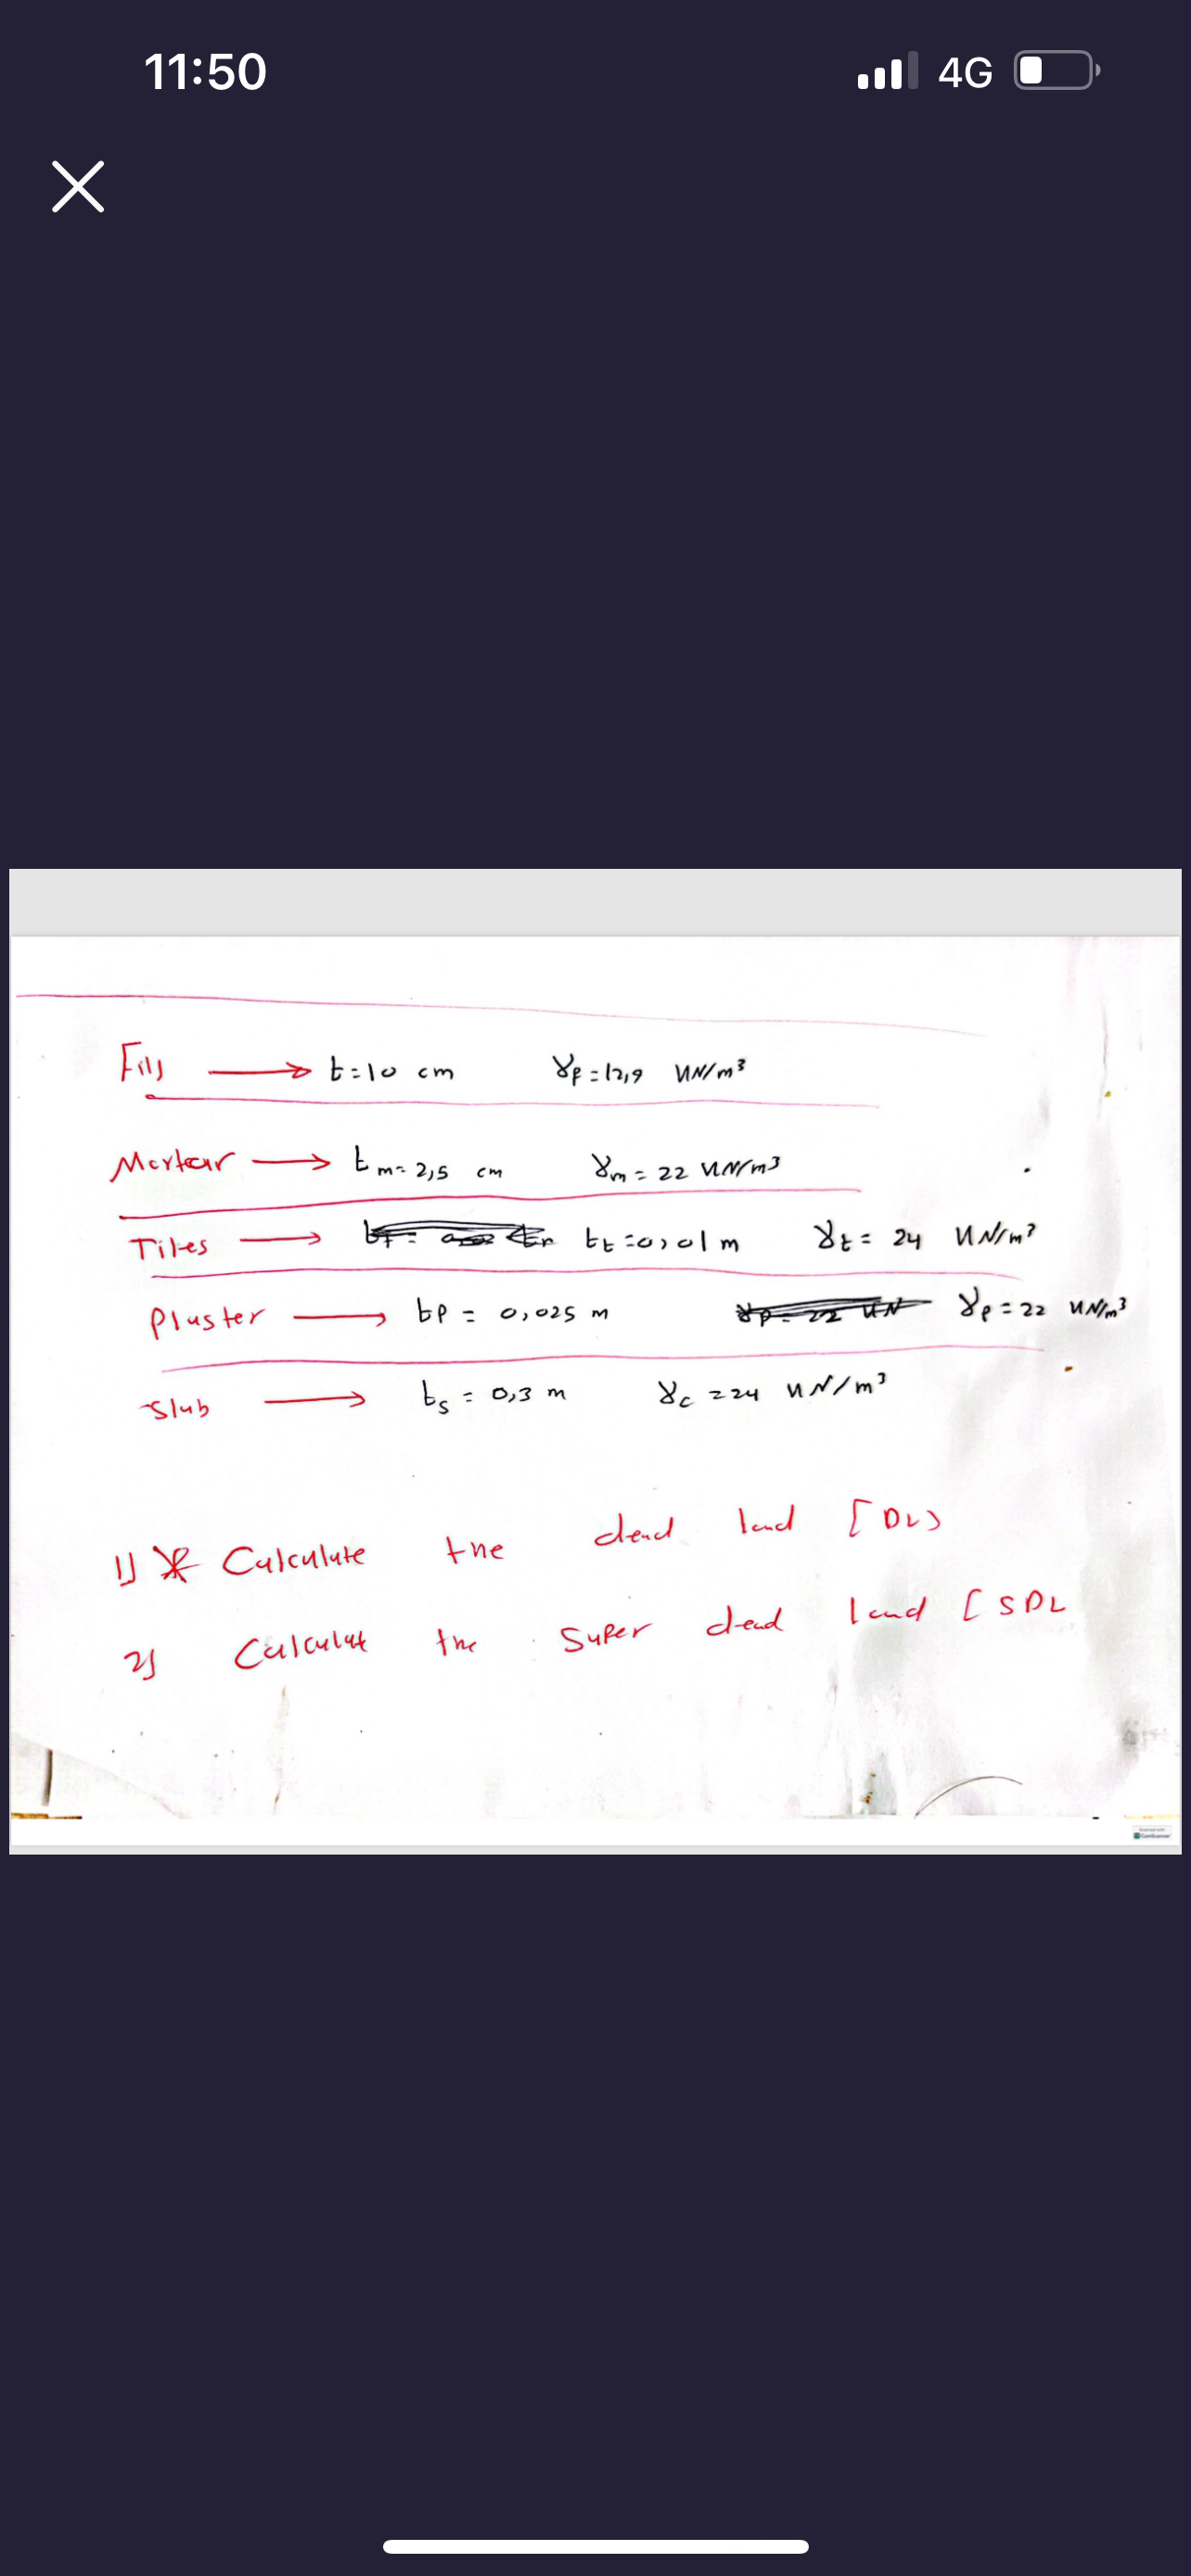 11:50 4G
Fill → t=10 cm γF=12,9 KN/m³
Mortar → tm=2,5 cm γm=22 KN/m³
Tiles → tt=0,01 m γt=24 KN/m³
Pluster → tP=0,025 m γP=22 KN/m³
Slub → ts=0,3 m γc=24 KN/m³
1) Calculate the dead load [DL]
2) Calculat the Super dead load [SDL
CamScanner